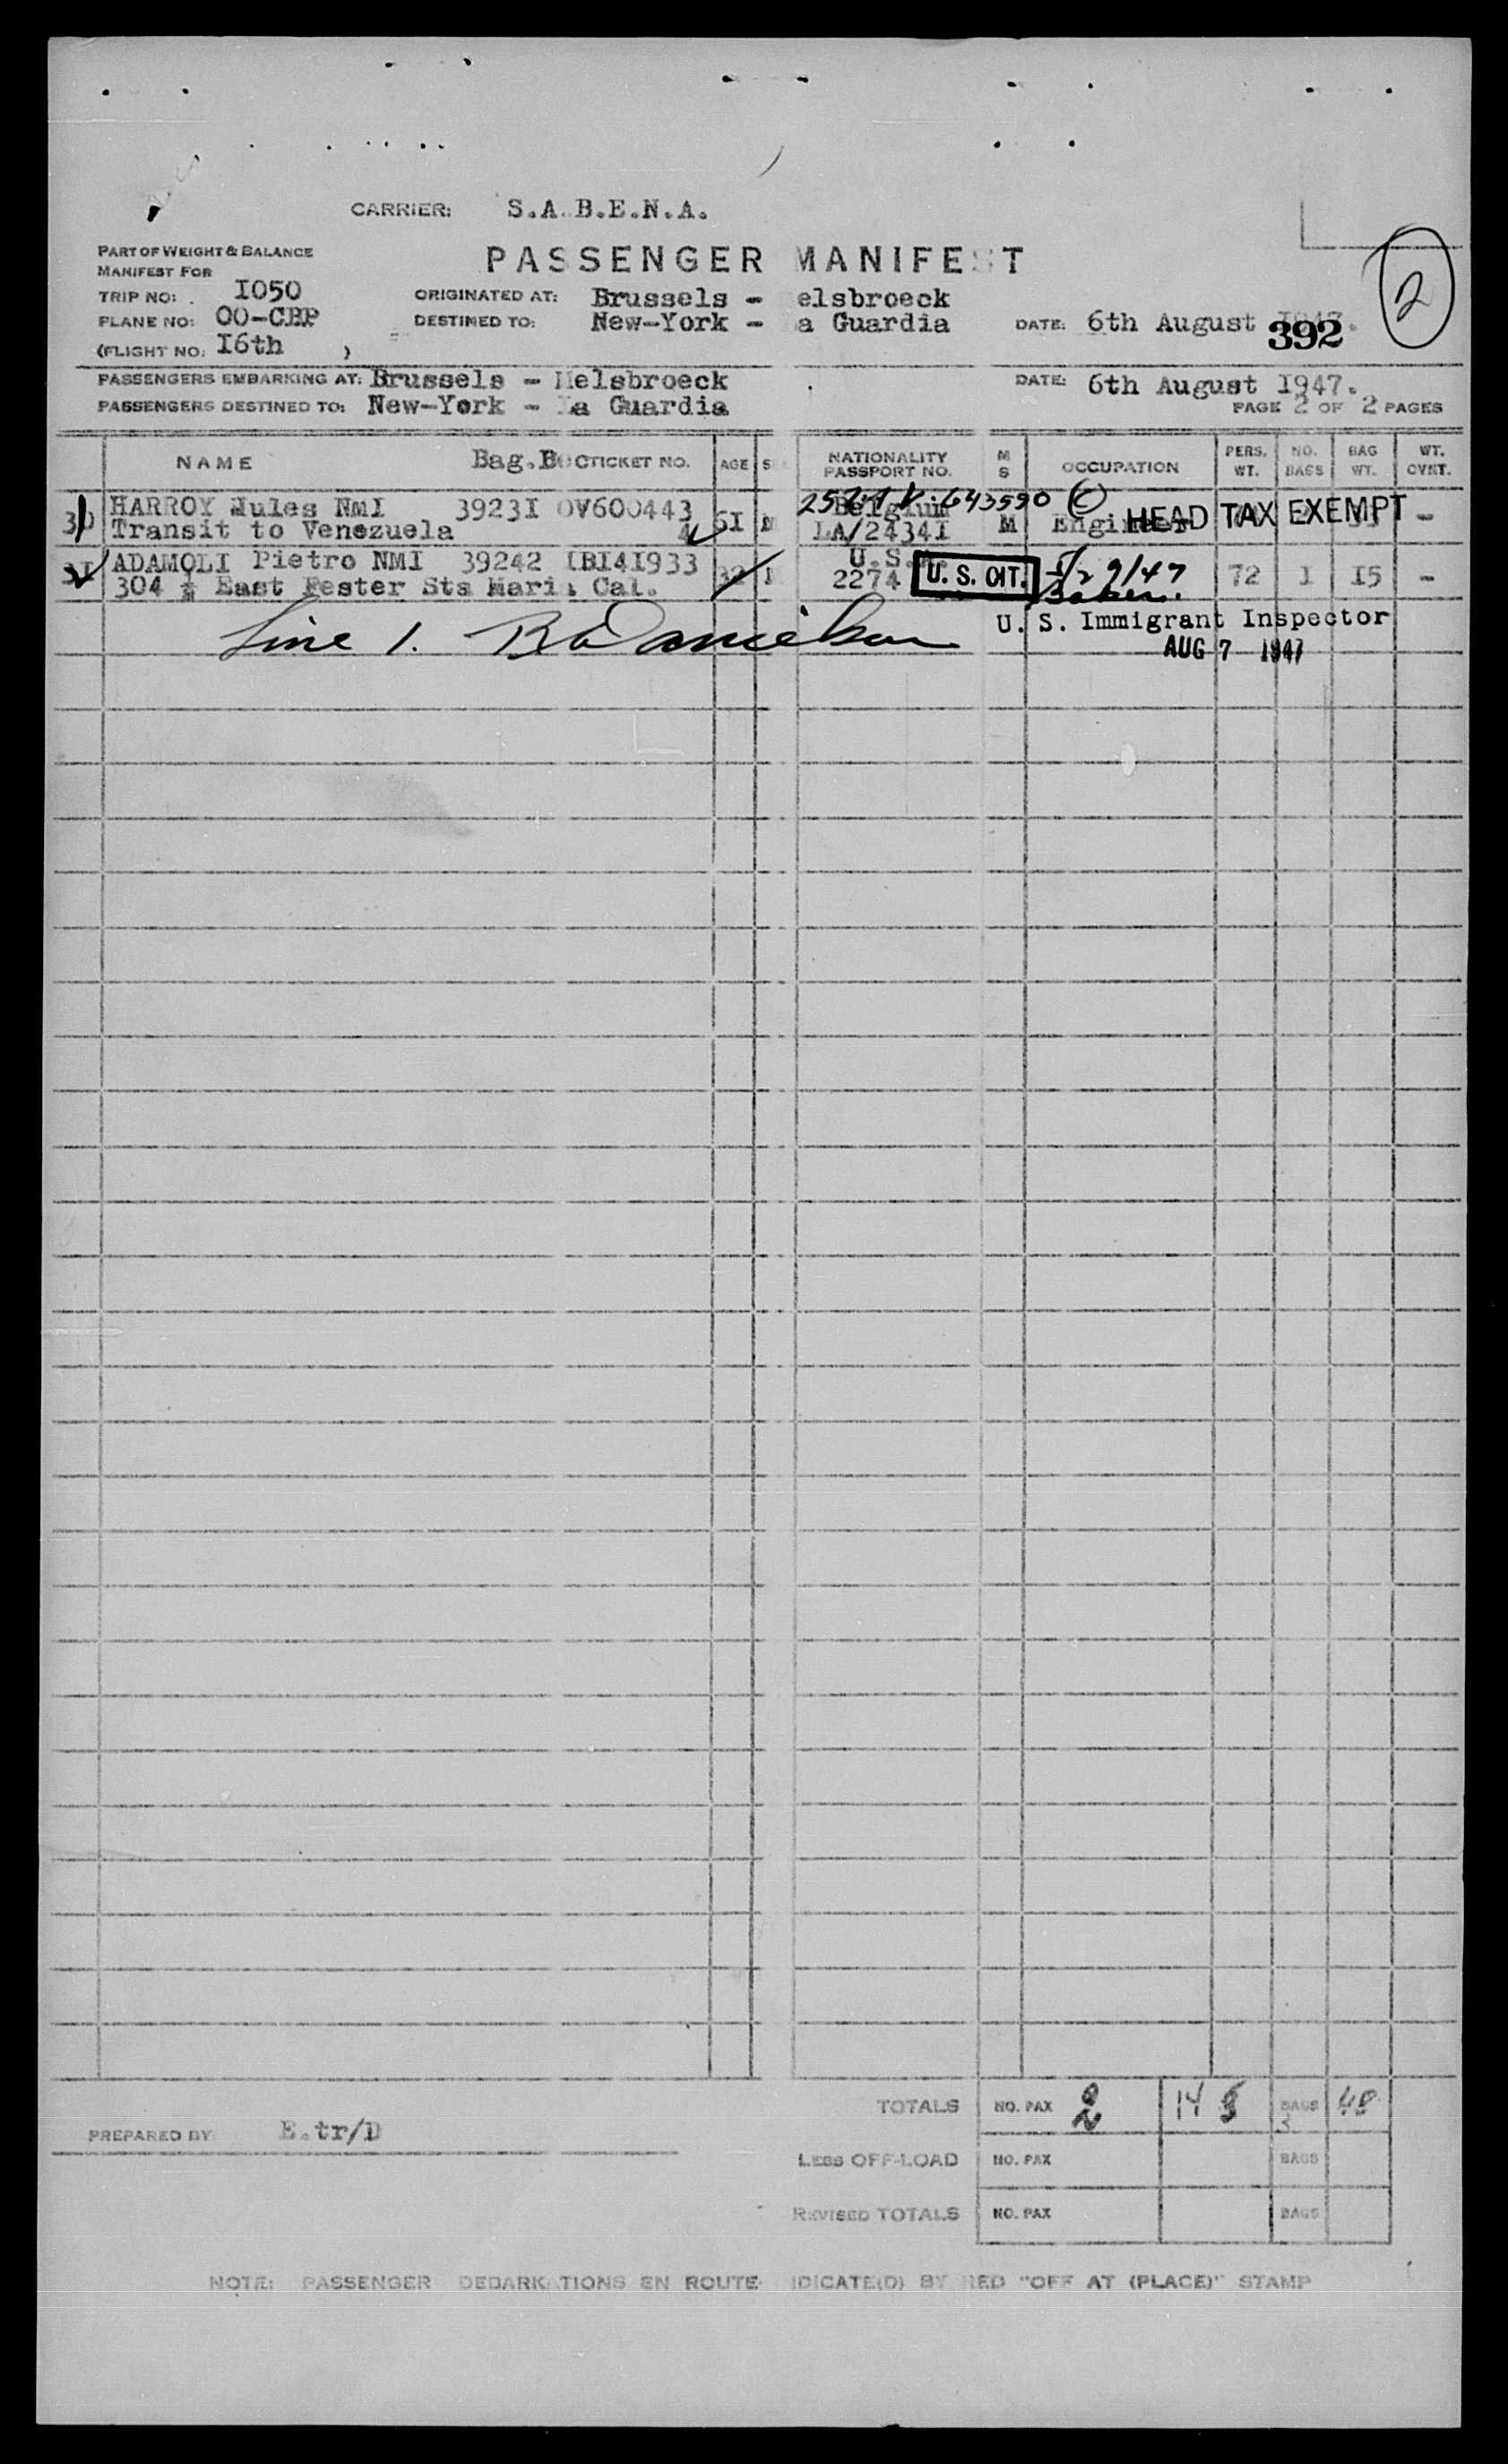 CARRIER: S.A.B.E.N.A.
PART OF WEIGHT & BALANCE
MANIFEST FOR
PASSENGER MANIFEST
2
TRIP NO: I050
ORIGINATED AT: Brussels - elsbroeck
PLANE NO: OO-CBP
DESTINED TO: New-York - a Guardia
DATE: 6th August 1947.
392
(FLIGHT NO: I6th )
PASSENGERS EMBARKING AT: Brussels - Melsbroeck
DATE: 6th August I947.
PASSENGERS DESTINED TO: New-York - La Guardia
PAGE 2 OF 2 PAGES
NAME Bag. TICKET NO. AGE NATIONALITY PASSPORT NO. M S OCCUPATION PERS. WT. NO. BAGS BAG WT. WT. OVRT.
643590
30 HARROY Jules NMI 3923I OV600443 6I M Belgium M Engineer HEAD TAX EXEMPT -
Transit to Venezuela 4 LA/2434I
3I ADAMOLI Pietro NMI 39242 IBI4I933 32 U.S. 72 I I5 -
304 ½ East Fester Sta Maria Cal. 2274 U. S. CIT. 5/29/47
Baker.
Line 1. U. S. Immigrant Inspector
AUG 7 1947
TOTALS NO. PAX 2 BAGS 3 48
PREPARED BY E.tr/D
LESS OFF-LOAD NO. PAX BAGS
REVISED TOTALS NO. PAX BAGS
NOTE: PASSENGER DEBARKATIONS EN ROUTE IDICATE(D) BY RED "OFF AT (PLACE)" STAMP